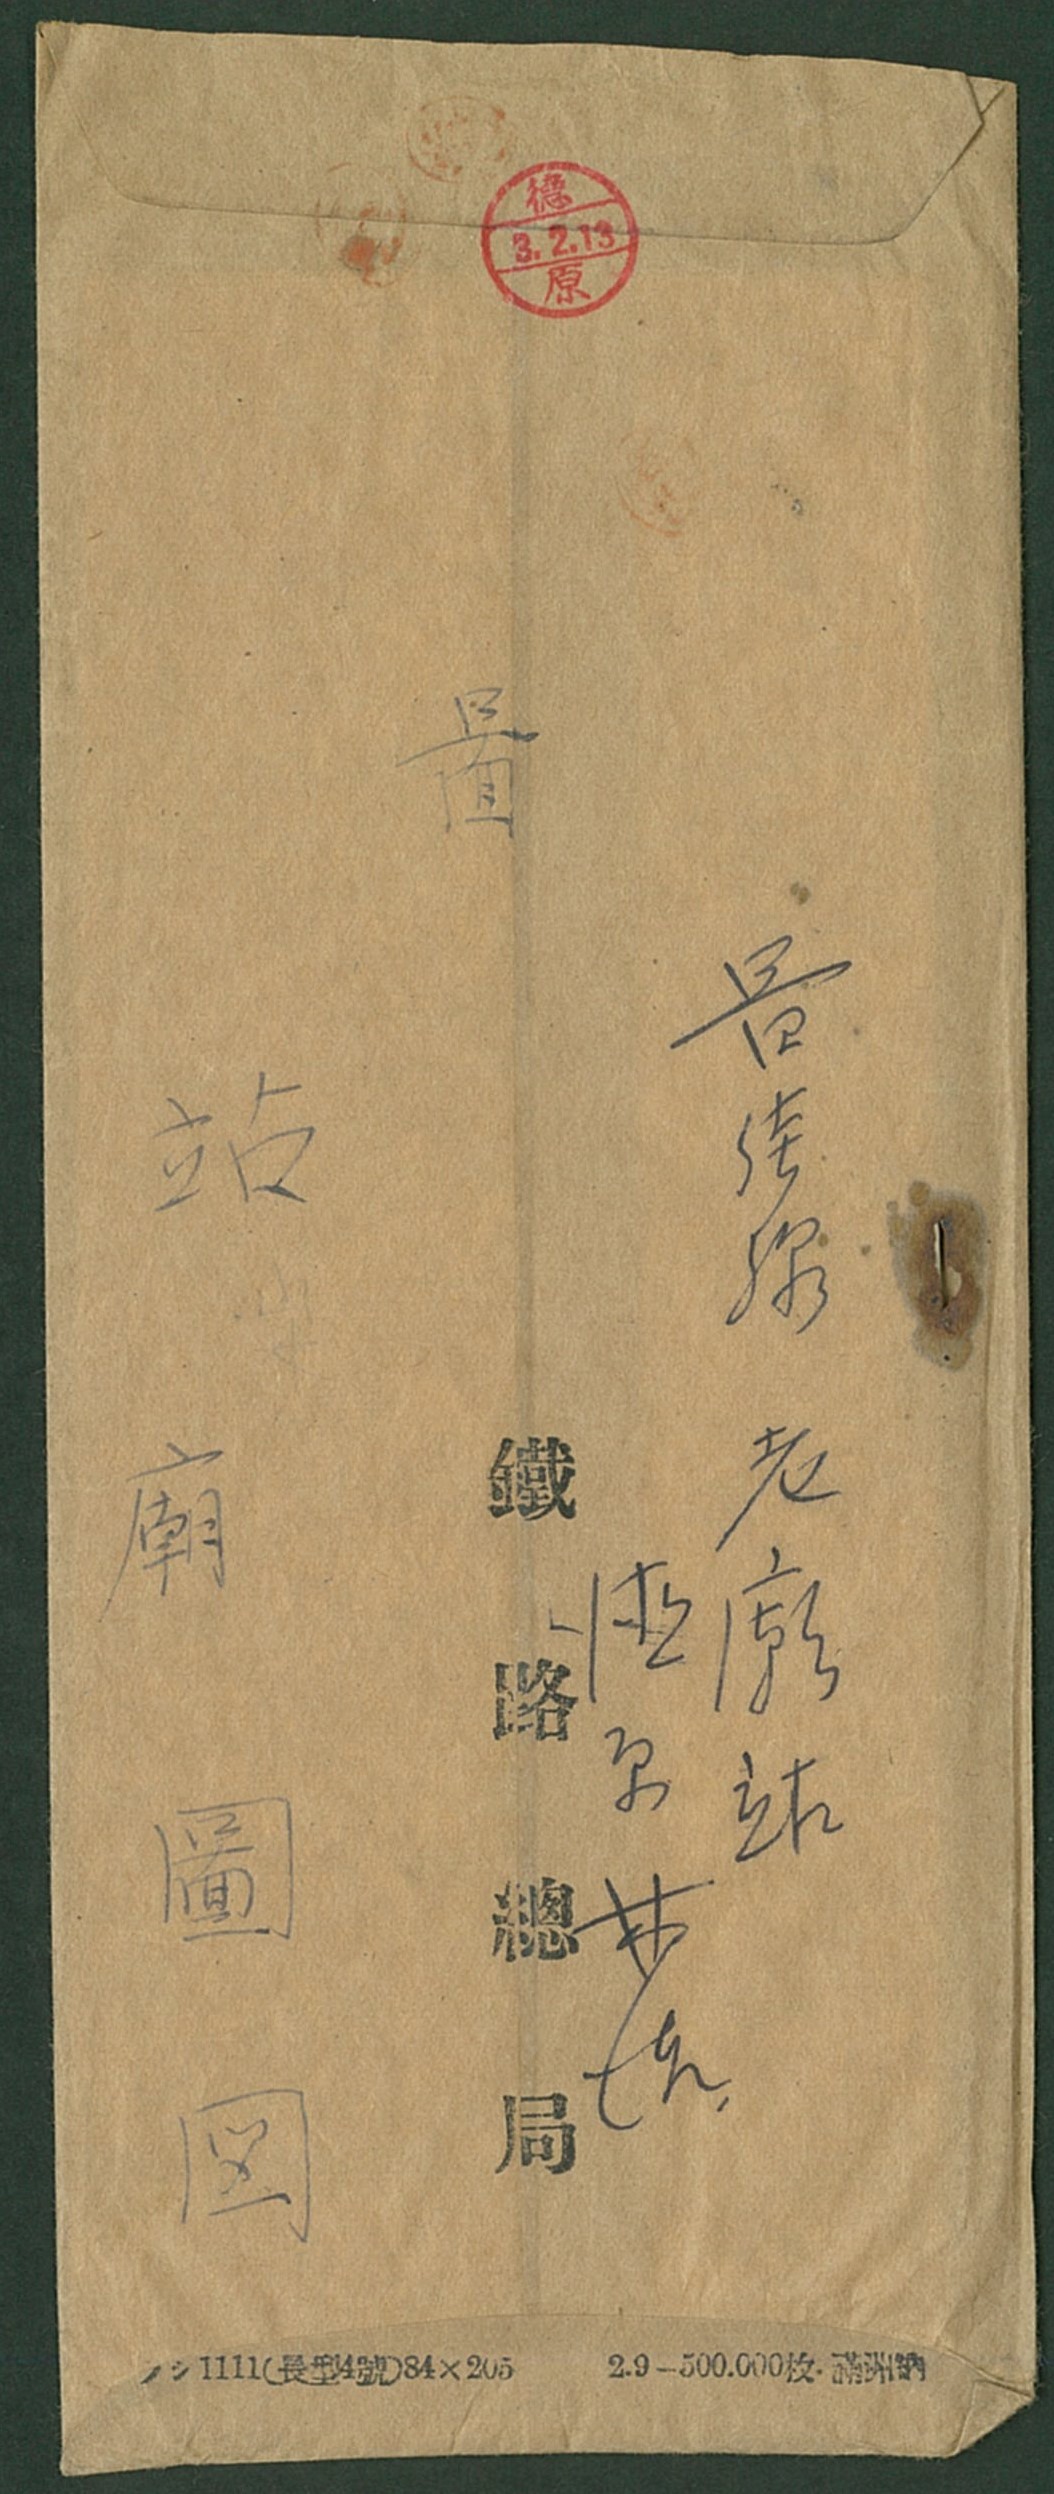 德
3.2.13
原
啚
啚佳線 老廟站
德原
鐵路總局
站
廟
圖
図
ノシ1111(長型4號)84×205
2.9-500.000枚.滿洲納